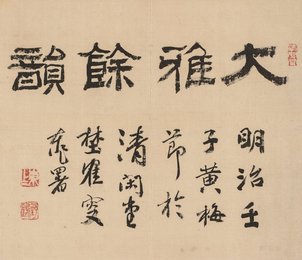 大雅餘韻
明治壬
子黄梅
節於
清閑堂
叟
署